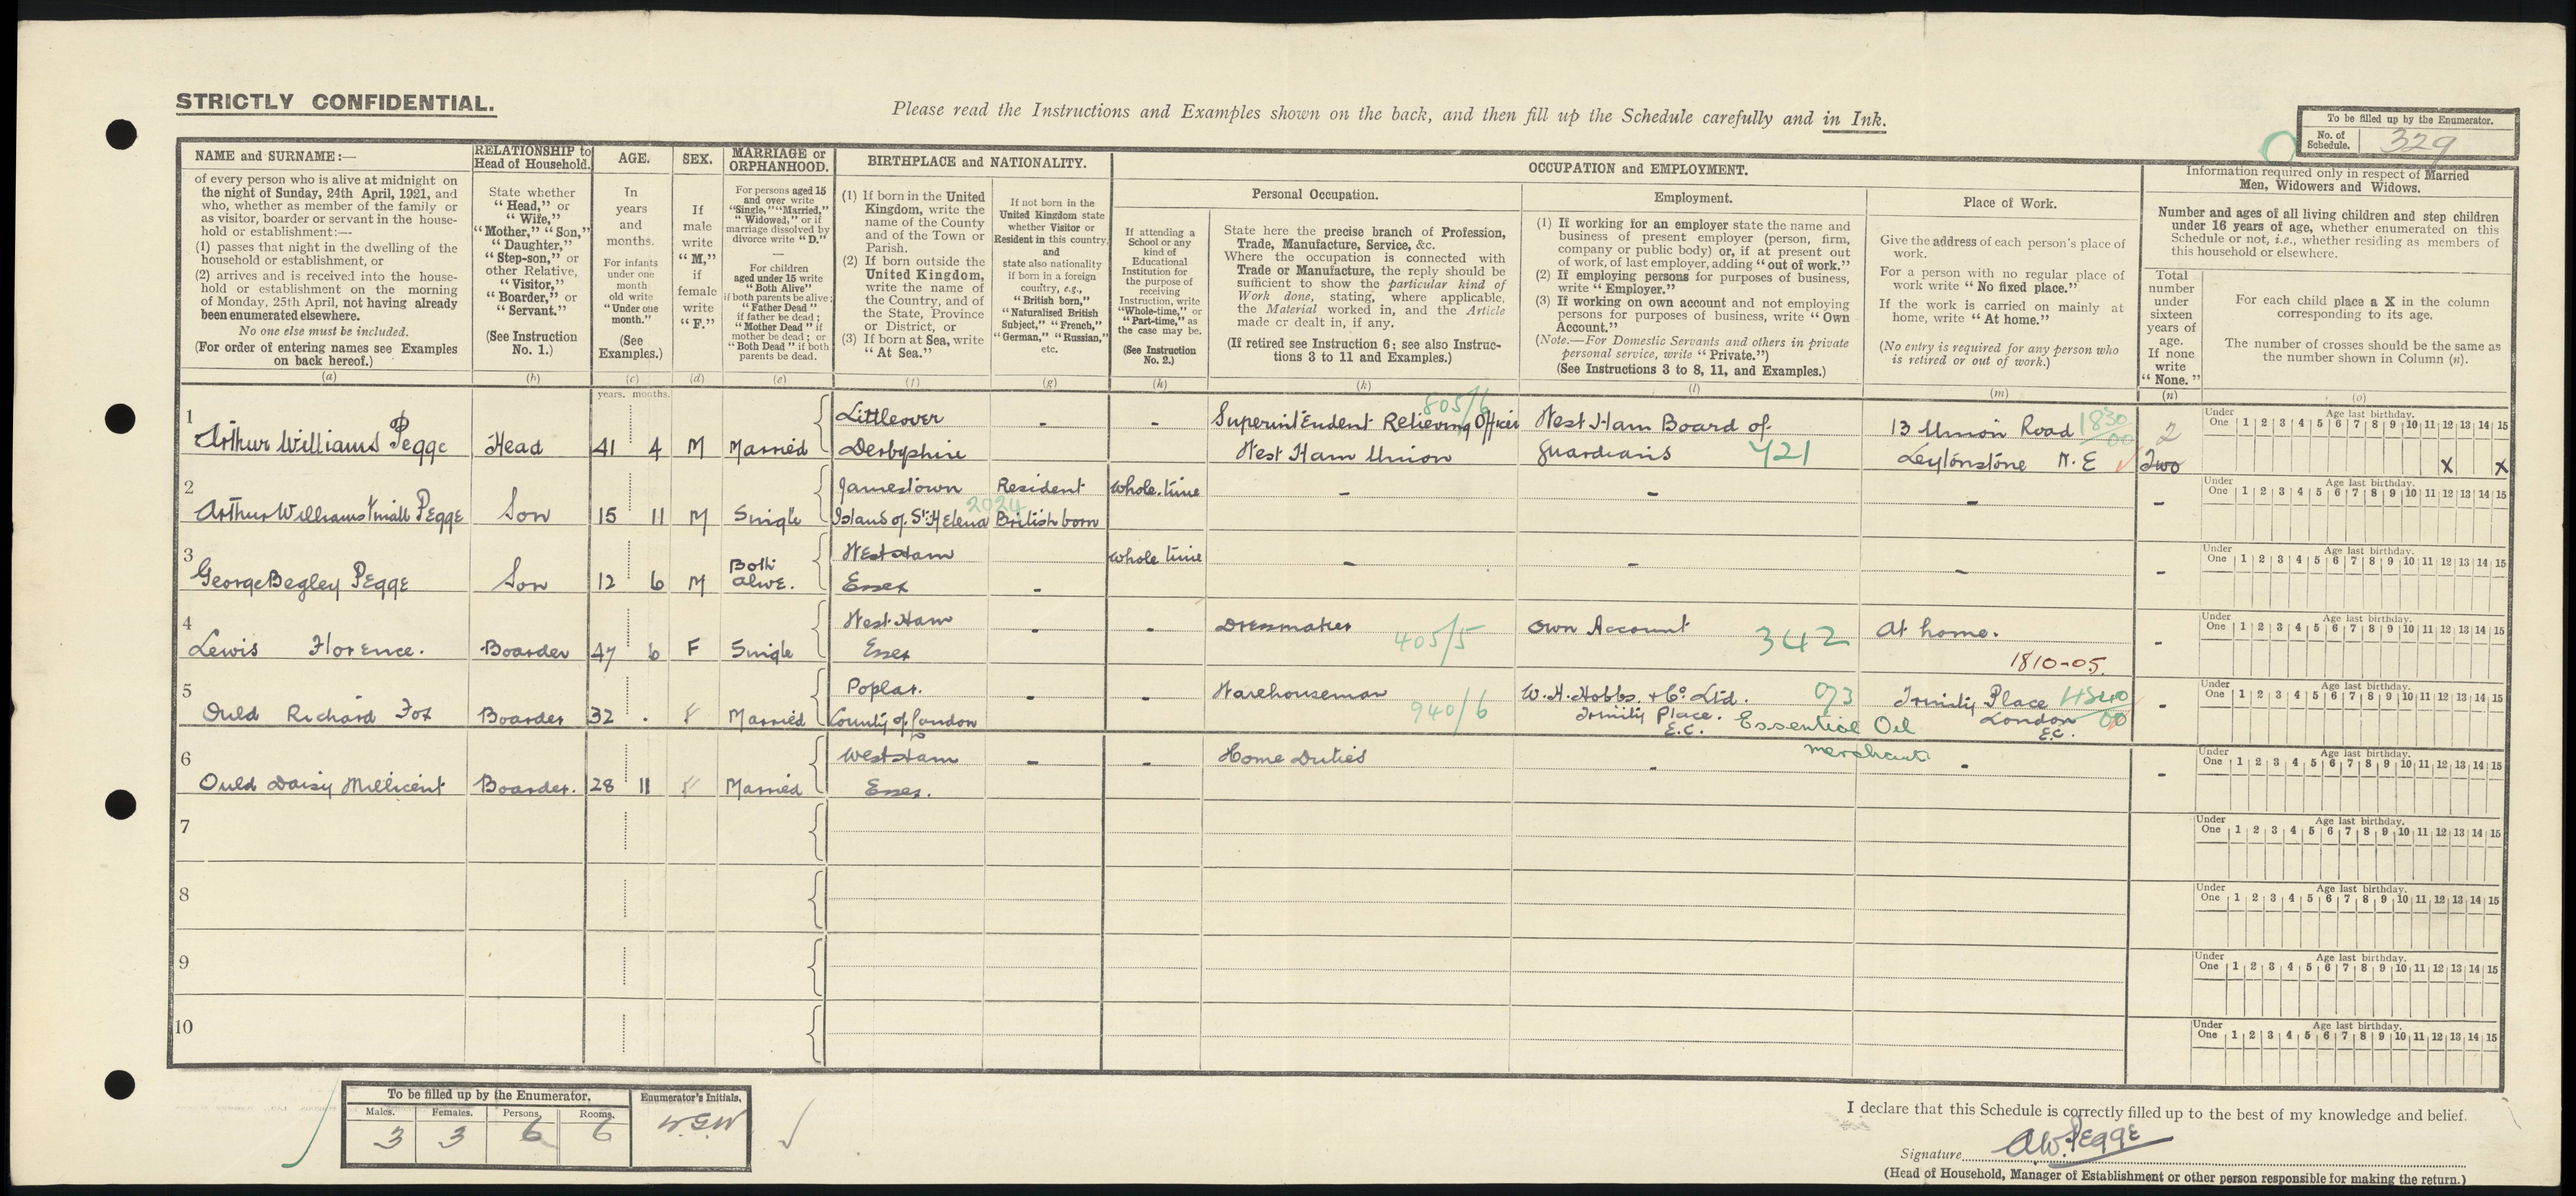 STRICTLY CONFIDENTIAL.
Please read the Instructions and Examples shown on the back, and then fill up the Schedule carefully and in Ink.
To be filled up by the Enumerator.
No. of Schedule. 329
NAME and SURNAME:—
of every person who is alive at midnight on
the night of Sunday, 24th April, 1921, and
who, whether as member of the family or
as visitor, boarder or servant in the house-
hold or establishment:—
(1) passes that night in the dwelling of the
household or establishment, or
(2) arrives and is received into the house-
hold or establishment on the morning
of Monday, 25th April, not having already
been enumerated elsewhere.
No one else must be included.
(For order of entering names see Examples
on back hereof.)
(a)
RELATIONSHIP to
Head of Household.
State whether
"Head," or
"Wife,"
"Mother," "Son,"
"Daughter,"
"Step-son," or
other Relative,
"Visitor,"
"Boarder," or
"Servant."
(See Instruction
No. 1.)
(b)
AGE.
In
years
and
months.
For infants
under one
month
old write
"Under one
month."
(See
Examples.)
(c)
years. months.
SEX.
If
male
write
"M,"
if
female
write
"F."
(d)
MARRIAGE or
ORPHANHOOD.
For persons aged 15
and over write
"Single," "Married,"
"Widowed," or if
marriage dissolved by
divorce write "D."
For children
aged under 15 write
"Both Alive"
if both parents be alive;
"Father Dead"
if father be dead;
"Mother Dead" if
mother be dead; or
"Both Dead" if both
parents be dead.
(e)
BIRTHPLACE and NATIONALITY.
(1) If born in the United
Kingdom, write the
name of the County
and of the Town or
Parish.
(2) If born outside the
United Kingdom,
write the name of
the Country, and of
the State, Province
or District, or
(3) If born at Sea, write
"At Sea."
(f)
If not born in the
United Kingdom state
whether Visitor or
Resident in this country,
and
state also nationality
if born in a foreign
country, e.g.,
"British born,"
"Naturalised British
Subject," "French,"
"German," "Russian,"
etc.
(g)
OCCUPATION and EMPLOYMENT.
If attending a
School or any
kind of
Educational
Institution for
the purpose of
receiving
Instruction, write
"Whole-time," or
"Part-time," as
the case may be.
(See Instruction
No. 2.)
(h)
Personal Occupation.
State here the precise branch of Profession,
Trade, Manufacture, Service, &c.
Where the occupation is connected with
Trade or Manufacture, the reply should be
sufficient to show the particular kind of
Work done, stating, where applicable,
the Material worked in, and the Article
made or dealt in, if any.
(If retired see Instruction 6; see also Instruc-
tions 3 to 11 and Examples.)
(k)
Employment.
(1) If working for an employer state the name and
business of present employer (person, firm,
company or public body) or, if at present out
of work, of last employer, adding "out of work."
(2) If employing persons for purposes of business,
write "Employer."
(3) If working on own account and not employing
persons for purposes of business, write "Own
Account."
(Note.—For Domestic Servants and others in private
personal service, write "Private.")
(See Instructions 3 to 8, 11, and Examples.)
(l)
Place of Work.
Give the address of each person's place of
work.
For a person with no regular place of
work write "No fixed place."
If the work is carried on mainly at
home, write "At home."
(No entry is required for any person who
is retired or out of work.)
(m)
Information required only in respect of Married
Men, Widowers and Widows.
Number and ages of all living children and step children
under 16 years of age, whether enumerated on this
Schedule or not, i.e., whether residing as members of
this household or elsewhere.
Total
number
under
sixteen
years of
age.
If none
write
"None."
(n)
For each child place a X in the column
corresponding to its age.
The number of crosses should be the same as
the number shown in Column (n).
(o)
1 Arthur Williams Pegge Head 41 4 M Married Littleover Derbyshire - - Superintendent Relieving Officer West Ham Union 805/6 West Ham Board of Guardians 421 13 Union Road Leytonstone N.E 1830 00 2 Two
Under One Age last birthday. 1 2 3 4 5 6 7 8 9 10 11 12 13 14 15
X X
2 Arthur Williams Small Pegge Son 15 11 M Single Jamestown Island of St Helena 2024 Resident British born Whole time - - - -
Under One Age last birthday. 1 2 3 4 5 6 7 8 9 10 11 12 13 14 15
3 George Begley Pegge Son 12 6 M Both alive. West Ham Essex - Whole time - - - -
Under One Age last birthday. 1 2 3 4 5 6 7 8 9 10 11 12 13 14 15
4 Lewis Florence. Boarder 47 6 F Single West Ham Essex - - Dressmaker 405/5 Own Account 342 At home. -
1810-05.
Under One Age last birthday. 1 2 3 4 5 6 7 8 9 10 11 12 13 14 15
5 Ould Richard Fox Boarder 32 . F Married Poplar. County of London - - Warehouseman 940/6 W. H. Hobbs. & Co. Ltd. Trinity Place. E.C. 073 Essential Oil merchant Trinity Place London E.C. 00 -
Under One Age last birthday. 1 2 3 4 5 6 7 8 9 10 11 12 13 14 15
6 Ould Daisy Millicent Boarder. 28 11 F Married West Ham Essex. - - Home Duties - - -
Under One Age last birthday. 1 2 3 4 5 6 7 8 9 10 11 12 13 14 15
7
Under One Age last birthday. 1 2 3 4 5 6 7 8 9 10 11 12 13 14 15
8
Under One Age last birthday. 1 2 3 4 5 6 7 8 9 10 11 12 13 14 15
9
Under One Age last birthday. 1 2 3 4 5 6 7 8 9 10 11 12 13 14 15
10
Under One Age last birthday. 1 2 3 4 5 6 7 8 9 10 11 12 13 14 15
To be filled up by the Enumerator.
Males. Females. Persons. Rooms.
3 3 6 6
Enumerator's Initials.
W.G.W
I declare that this Schedule is correctly filled up to the best of my knowledge and belief.
Signature A.W. Pegge
(Head of Household, Manager of Establishment or other person responsible for making the return.)